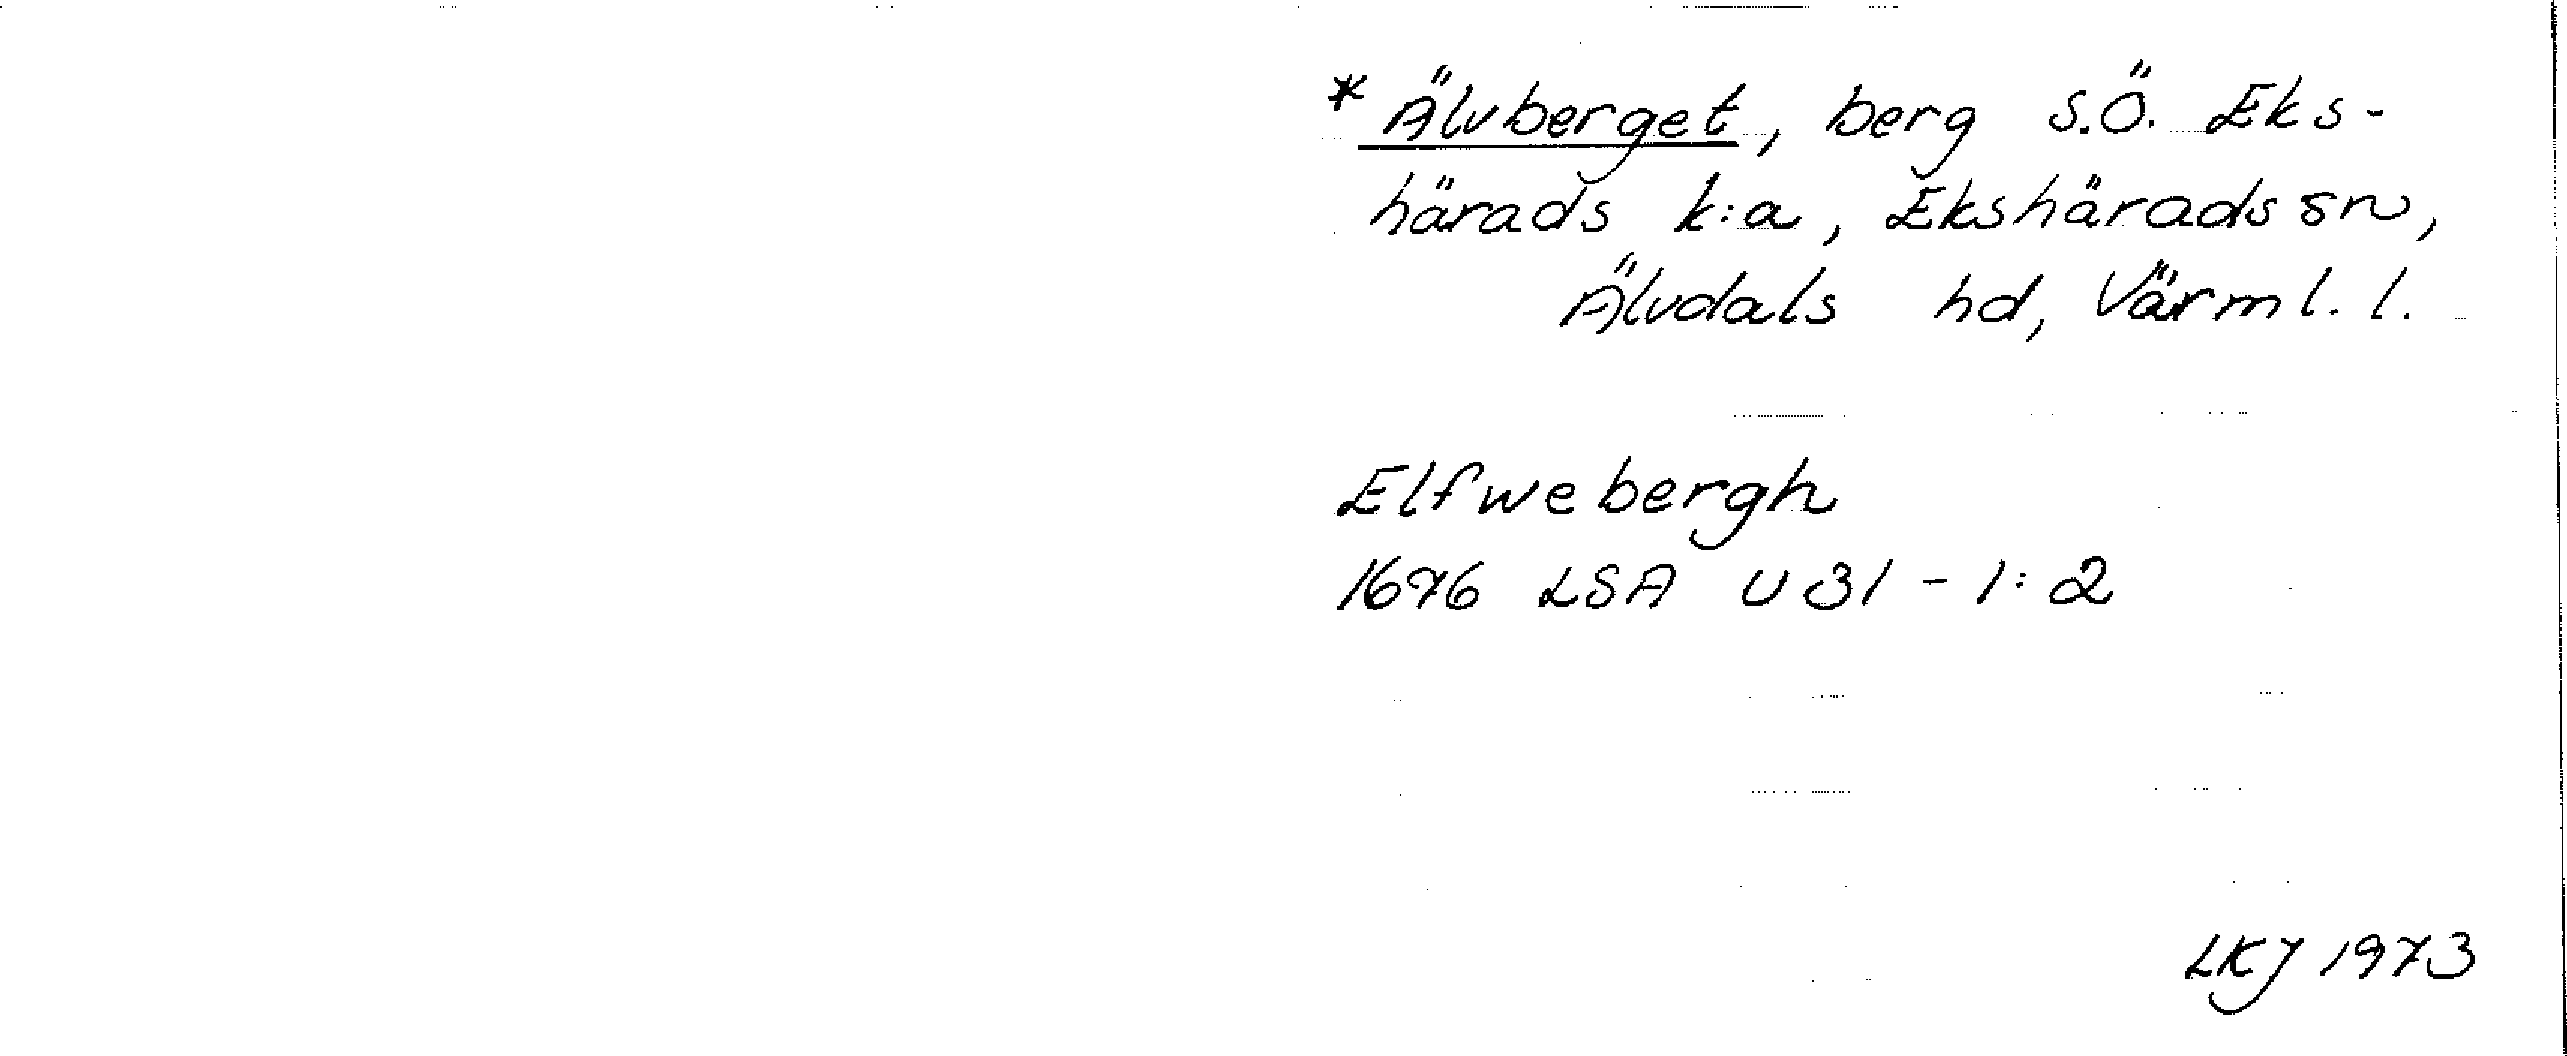 * Älvberget, berg s.ö. Eks-
härads k:a, Ekshärads sn,
Älvdals hd, Värml. l.
Elfwebergh
1676 LSA U31-1:2
LKJ 1973